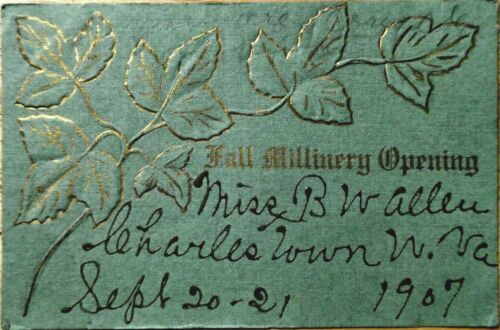 Fall Millinery Opening
Miss B W Allen
Charles Town W. Va
Sept 20-21 1907